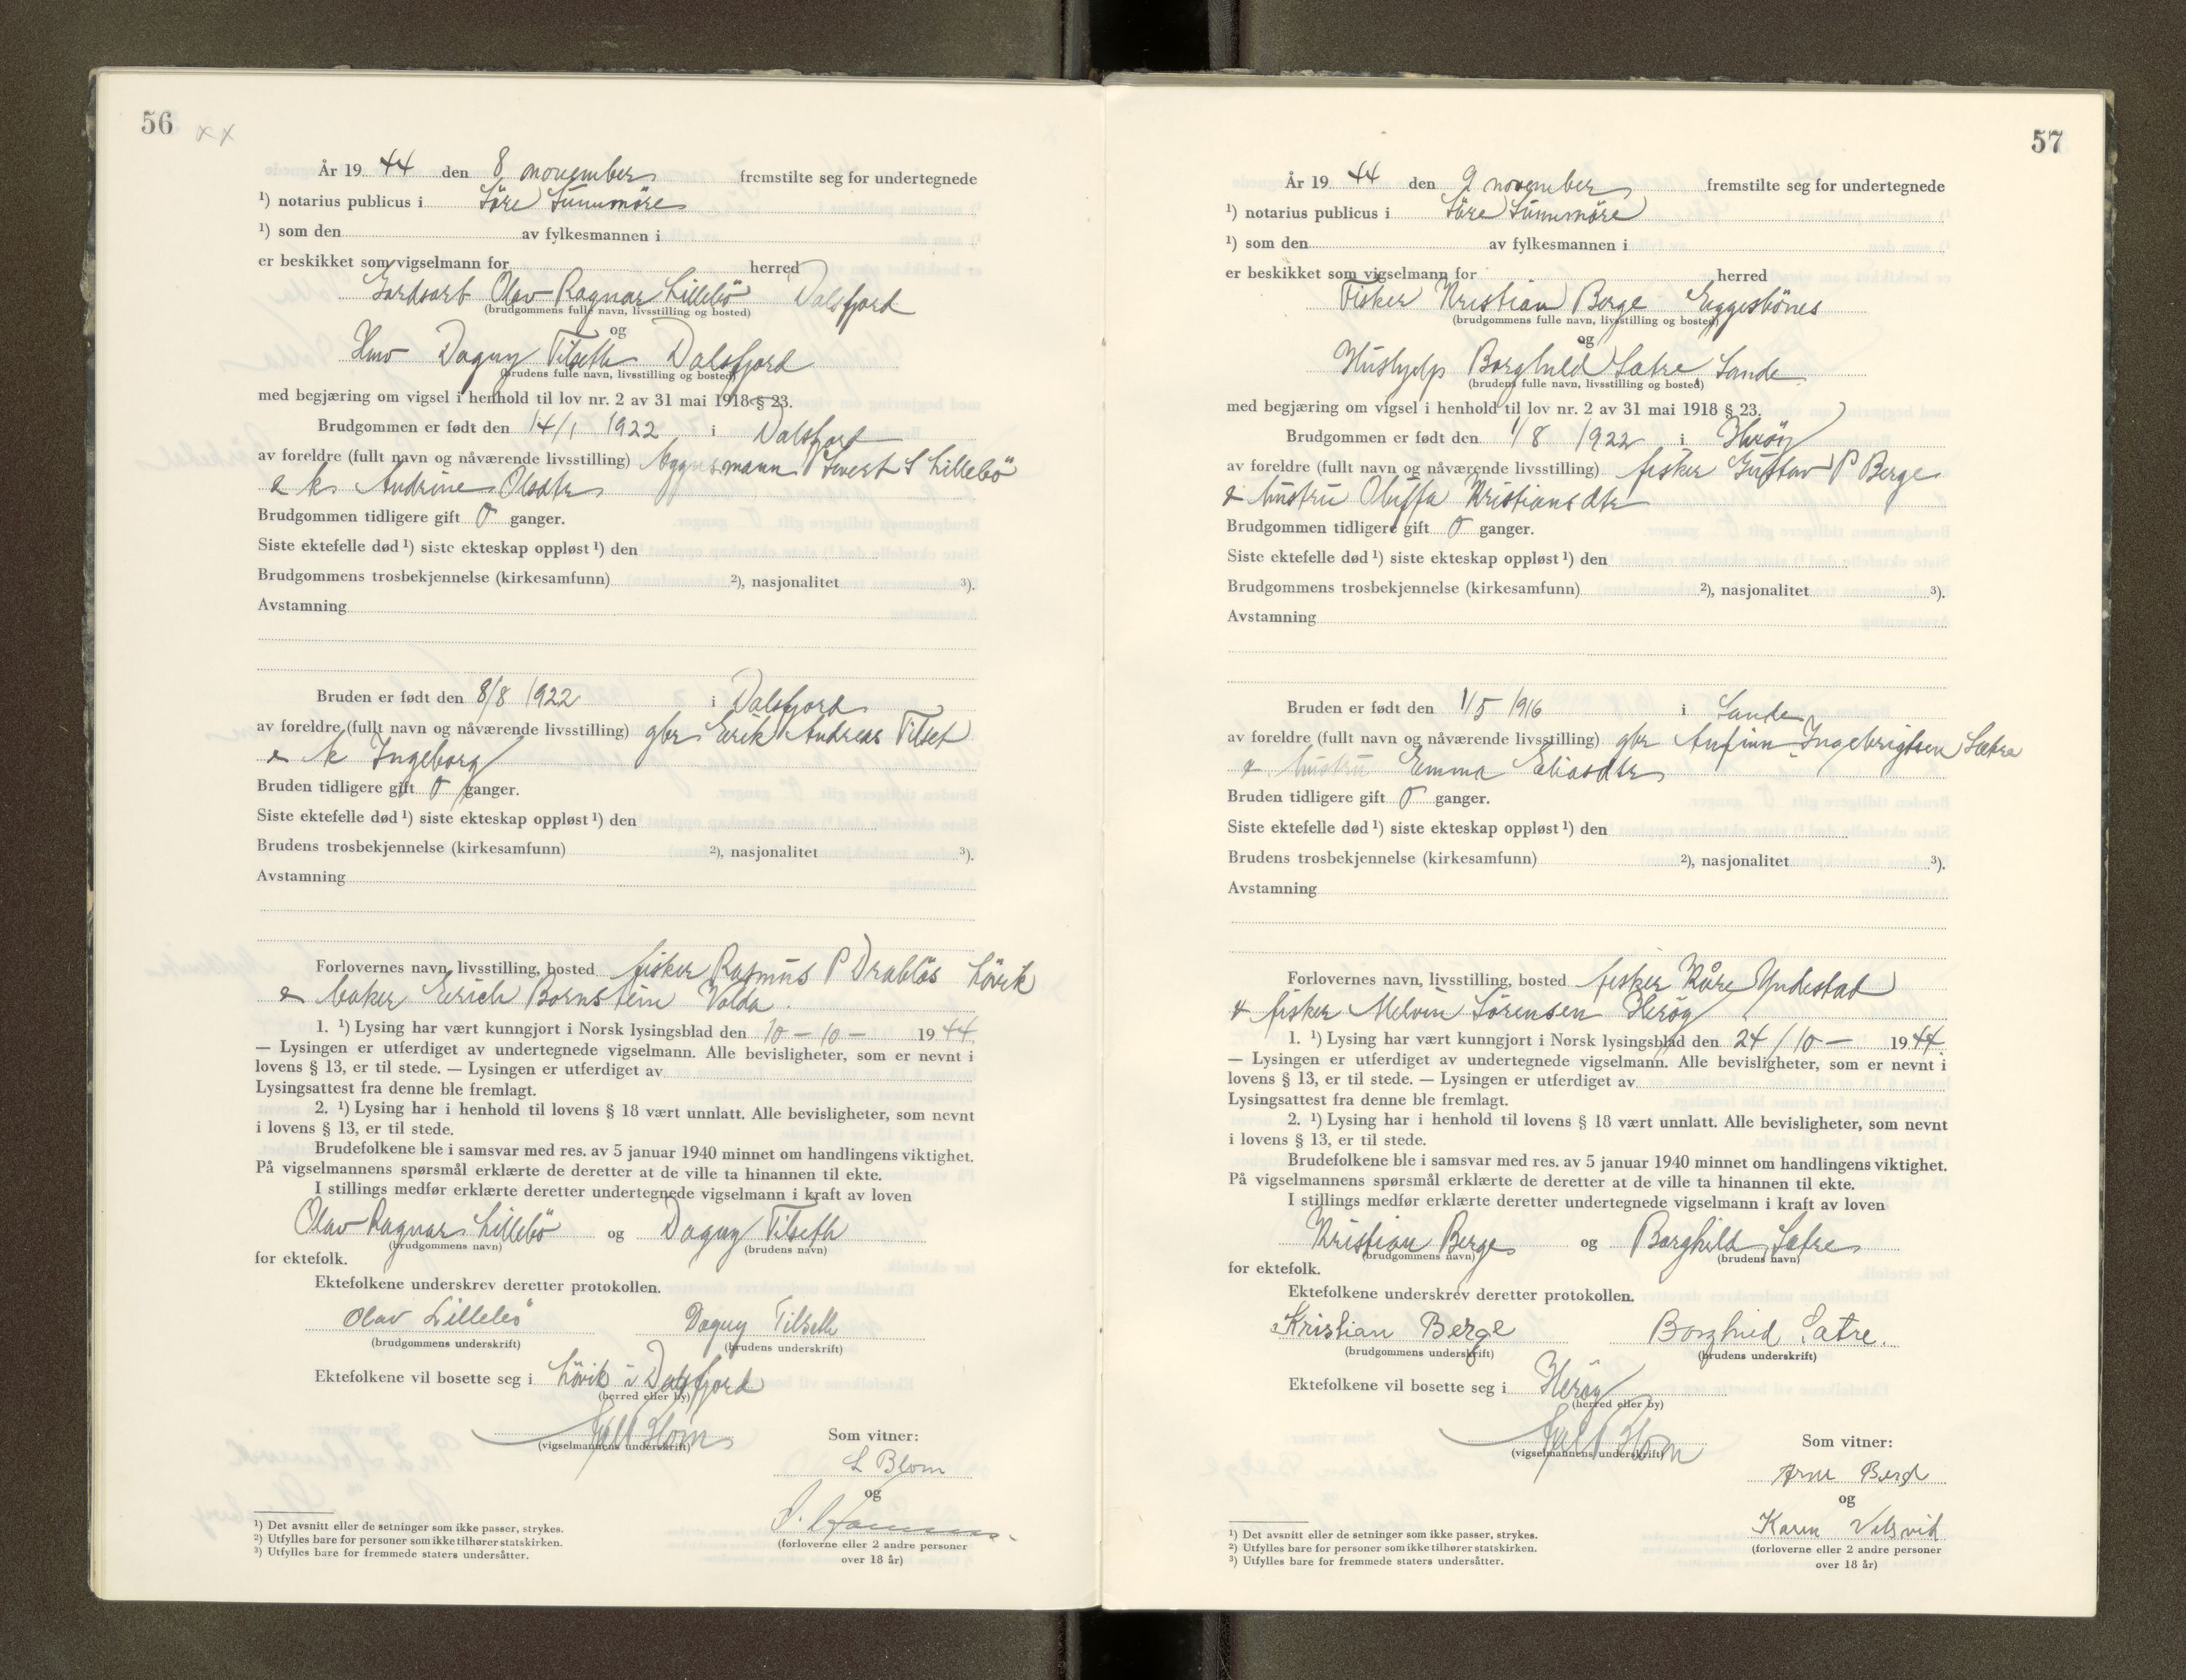 56 xx
År 19 44 den 8 november fremstilte seg for undertegnede
¹) notarius publicus i Söre Sunnmöre
¹) som den av fylkesmannen i
er beskikket som vigselmann for herred
Gardsarb Olav Ragnar Lillebö Dalsfjord
(brudgommens fulle navn, livsstilling og bosted)
og
Dagny Tilseth Dalsfjord
(brudens fulle navn, livsstilling og bosted)
med begjæring om vigsel i henhold til lov nr. 2 av 31 mai 1918 § 23.
Brudgommen er født den 14/1 1922 i Dalsfjord
av foreldre (fullt navn og nåværende livsstilling) Sivert S Lillebö
& k Andrine Olsdtr
Brudgommen tidligere gift 0 ganger.
Siste ektefelle død ¹) siste ekteskap oppløst ¹) den
Brudgommens trosbekjennelse (kirkesamfunn) ²), nasjonalitet ³).
Avstamning
Bruden er født den 8/8 1922 i Dalsfjord
av foreldre (fullt navn og nåværende livsstilling) gbr Eirik Andreas Tilset
& k Ingeborg
Bruden tidligere gift 0 ganger.
Siste ektefelle død ¹) siste ekteskap oppløst ¹) den
Brudens trosbekjennelse (kirkesamfunn) ²), nasjonalitet ³).
Avstamning
Forlovernes navn, livsstilling, bosted fisker Rasmus P Drablös Lövik
& baker Erich Bornstein Volda.
1. ¹) Lysing har vært kunngjort i Norsk lysingsblad den 10 – 10 – 19 44
— Lysingen er utferdiget av undertegnede vigselmann. Alle bevisligheter, som er nevnt i
lovens § 13, er til stede. — Lysingen er utferdiget av
Lysingsattest fra denne ble fremlagt.
2. ¹) Lysing har i henhold til lovens § 18 vært unnlatt. Alle bevisligheter, som nevnt
i lovens § 13, er til stede.
Brudefolkene ble i samsvar med res. av 5 januar 1940 minnet om handlingens viktighet.
På vigselmannens spørsmål erklærte de deretter at de ville ta hinannen til ekte.
I stillings medfør erklærte deretter undertegnede vigselmann i kraft av loven
Olav Ragnar Lillebö og Dagny Tilseth
(brudgommens navn) (brudens navn)
for ektefolk.
Ektefolkene underskrev deretter protokollen.
Olav Lillebö Dagny Tilseth
(brudgommens underskrift) (brudens underskrift)
Ektefolkene vil bosette seg i Lövik i Dalsfjord
(herred eller by)
(vigselmannens underskrift)
Som vitner:
L Blom
og
(forloverne eller 2 andre personer
over 18 år)
¹) Det avsnitt eller de setninger som ikke passer, strykes.
²) Utfylles bare for personer som ikke tilhører statskirken.
³) Utfylles bare for fremmede staters undersåtter.
57
År 19 44 den 9 november fremstilte seg for undertegnede
¹) notarius publicus i Söre Sunnmöre
¹) som den av fylkesmannen i
er beskikket som vigselmann for herred
Fisker Kristian Berge Eggesbönes
(brudgommens fulle navn, livsstilling og bosted)
og
Hushjelp Borghild Sætre Sande
(brudens fulle navn, livsstilling og bosted)
med begjæring om vigsel i henhold til lov nr. 2 av 31 mai 1918 § 23.
Brudgommen er født den 1/8 1922 i Heröy
av foreldre (fullt navn og nåværende livsstilling) fisker Gustav P Berge
& hustru Oluffa Kristiansdtr
Brudgommen tidligere gift 0 ganger.
Siste ektefelle død ¹) siste ekteskap oppløst ¹) den
Brudgommens trosbekjennelse (kirkesamfunn) ²), nasjonalitet ³).
Avstamning
Bruden er født den 1/5 1916 i Sande
av foreldre (fullt navn og nåværende livsstilling) gbr Anfinn Ingebrigtsen Sætre
& hustru Emma Eliasdtr
Bruden tidligere gift 0 ganger.
Siste ektefelle død ¹) siste ekteskap oppløst ¹) den
Brudens trosbekjennelse (kirkesamfunn) ²), nasjonalitet ³).
Avstamning
Forlovernes navn, livsstilling, bosted fisker Kåre Yndestad
& fisker Melvin Sörensen Heröy
1. ¹) Lysing har vært kunngjort i Norsk lysingsblad den 24 / 10 – 19 44
— Lysingen er utferdiget av undertegnede vigselmann. Alle bevisligheter, som er nevnt i
lovens § 13, er til stede. — Lysingen er utferdiget av
Lysingsattest fra denne ble fremlagt.
2. ¹) Lysing har i henhold til lovens § 18 vært unnlatt. Alle bevisligheter, som nevnt
i lovens § 13, er til stede.
Brudefolkene ble i samsvar med res. av 5 januar 1940 minnet om handlingens viktighet.
På vigselmannens spørsmål erklærte de deretter at de ville ta hinannen til ekte.
I stillings medfør erklærte deretter undertegnede vigselmann i kraft av loven
Kristian Berge og Borghild Sætre
(brudgommens navn) (brudens navn)
for ektefolk.
Ektefolkene underskrev deretter protokollen.
Kristian Berge Borghild Sætre.
(brudgommens underskrift) (brudens underskrift)
Ektefolkene vil bosette seg i Heröy
(herred eller by)
(vigselmannens underskrift)
Som vitner:
Arne
og
Karen
(forloverne eller 2 andre personer
over 18 år)
¹) Det avsnitt eller de setninger som ikke passer, strykes.
²) Utfylles bare for personer som ikke tilhører statskirken.
³) Utfylles bare for fremmede staters undersåtter.